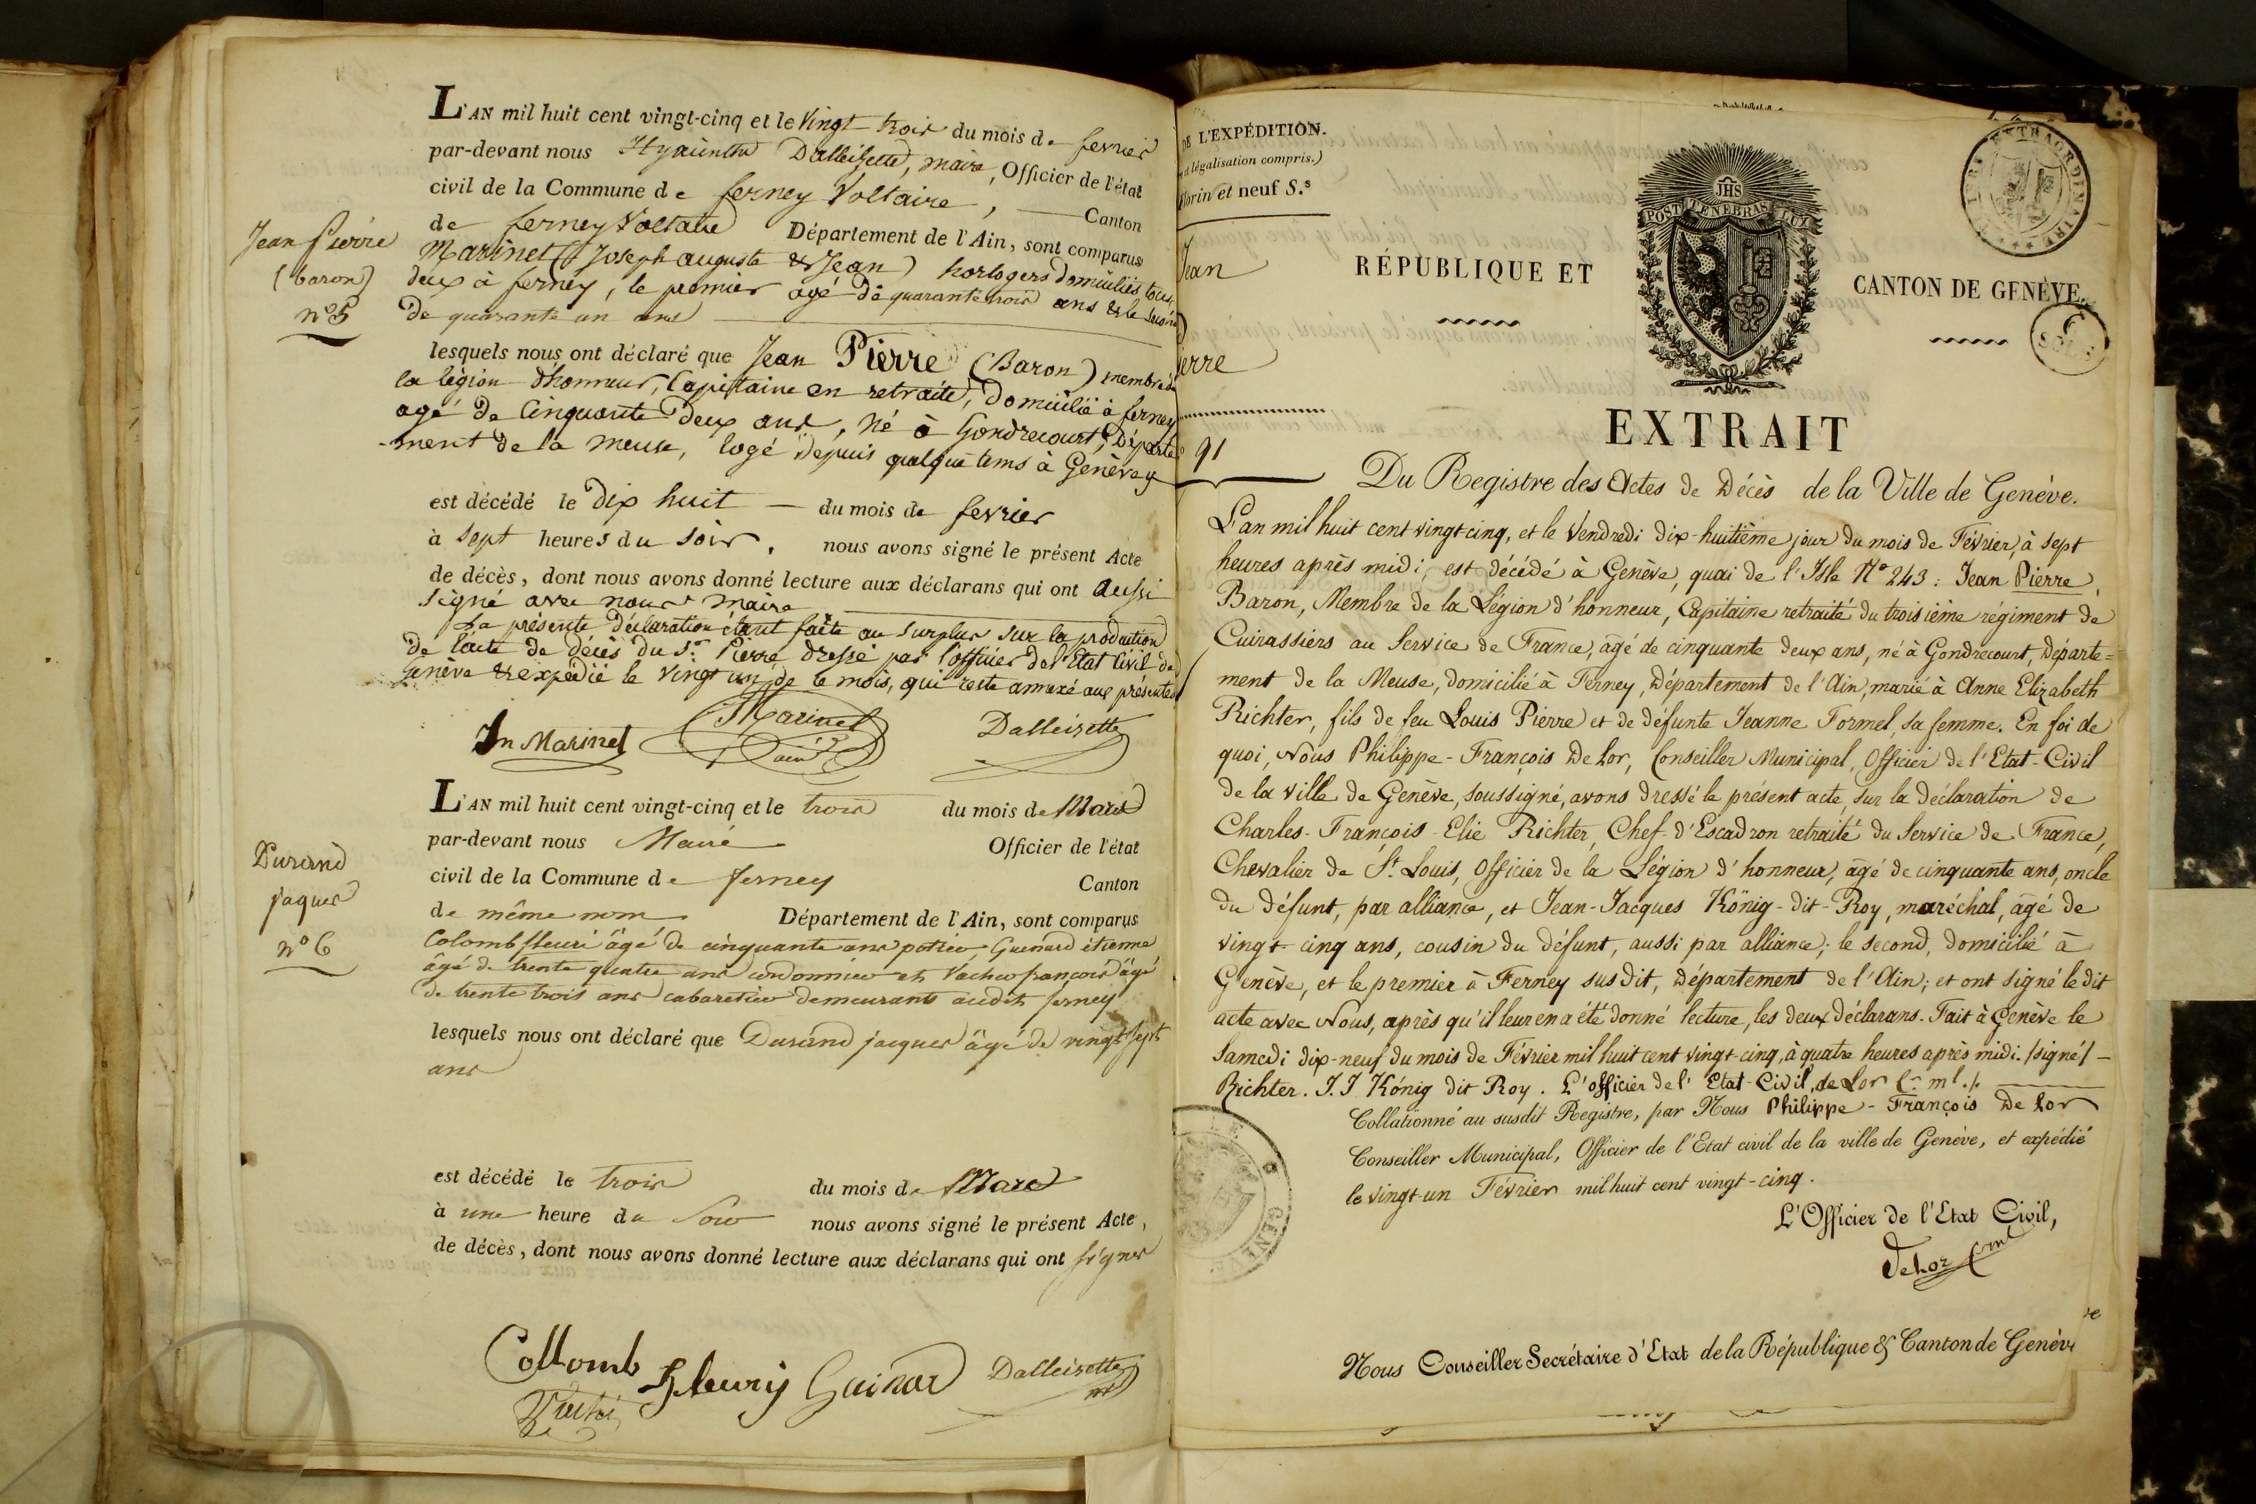 L'AN mil huit cent vingt-cinq et le vingt trois du mois de fevrier
par-devant nous Hyacinthe Dalleizette, maire, Officier de l'état
civil de la Commune de ferney Voltaire, Canton
de ferney Voltaire Département de l'Ain, sont comparus
Jean Pierre
(baron)
n° 5
Marinet (Joseph auguste & Jean) horlogers domiciliés tous
deux à ferney, le premier agé de quarante trois ans & le second
de quarante un ans
lesquels nous ont déclaré que Jean Pierre (Baron) membre de
la légion d'honneur, Capitaine en retraite, domicilié à ferney
agé de Cinquante deux ans, né à Gondrecourt, Départe
-ment de la meuse, logé depuis quelque tems à Genève y
est décédé le dix huit du mois de fevrier
à sept heures du soir, nous avons signé le présent Acte
de décès, dont nous avons donné lecture aux déclarans qui ont aussi
signé avec nous maire
La présente déclaration étant faite au surplus sur la production
de l'acte de décès du Sr. Pierre dressé par l'officier de l'Etat Civil de
Genève & expédié le vingt un de ce mois, qui reste annexé aux présentes
Jn Marinet Marinet Dalleizette
L'AN mil huit cent vingt-cinq et le trois du mois de Mars
par-devant nous Maire Officier de l'état
civil de la Commune de ferney Canton
de même nom Département de l'Ain, sont comparus
Durand
jaques
n° 6
Colomb fleuri âgé de cinquante ans potier, Guinard étienne
âgé de trente quatre ans cordonnier et Vacher françois âgé
de trente trois ans cabaretier demeurants audit ferney
lesquels nous ont déclaré que Durand jacques âgé de vingt sept
ans
est décédé le trois du mois de Mars
à une heure du soir nous avons signé le présent Acte,
de décès, dont nous avons donné lecture aux déclarans qui ont signer
Collomb fleury Guinar Dalleizette
DE L'EXPÉDITION.
légalisation compris.)
florin et neuf S.s
Jean
ierre
91
POST TENEBRAS LUX
JHS
RÉPUBLIQUE ET CANTON DE GENÈVE.
TIMBRE EXTRAORDINAIRE
6 SOLS
EXTRAIT
Du Registre des Actes de Décès de la Ville de Genève.
L'an mil huit cent vingt-cinq, et le Vendredi dix-huitième jour du mois de Février, à sept
heures après midi, est décédé à Genève, quai de l'Isle N° 243: Jean Pierre,
Baron, Membre de la Légion d'honneur, Capitaine retraité du troisième régiment de
Cuirassiers au Service de France, agé de cinquante deux ans, né à Gondrecourt, Départe=
ment de la Meuse, domicilié à Ferney, Département de l'Ain, marié à Anne Elizabeth
Richter, fils de feu Louis Pierre et de défunte Jeanne Formel, sa femme. En foi de
quoi, Nous Philippe-François DeLor, Conseiller Municipal, Officier de l'Etat-Civil
de la ville de Genève, soussigné, avons dressé le présent acte, sur la déclaration de
Charles-François-Elie Richter, Chef-d'Escadron retraité du Service de France,
Chevalier de St. Louis, Officier de la Légion d'honneur, âgé de cinquante ans, oncle
du défunt, par alliance, et Jean-Jacques König-dit-Roy, maréchal, âgé de
vingt-cinq ans, cousin du défunt, aussi par alliance; le second, domicilié à
Genève, et le premier à Ferney susdit, Département de l'Ain; et ont signé le dit
acte avec Nous, après qu'il leur en a été donné lecture, les deux déclarans. Fait à Genève le
Samedi dix-neuf du mois de Février mil huit cent vingt-cinq, à quatre heures après midi. /signé/-
Richter. J.J König dit Roy. L'officier de l'Etat-Civil, de Lor Cr. ml./.
Collationné au susdit Registre, par Nous Philippe-François De Lor
Conseiller Municipal, Officier de l'Etat civil de la ville de Genève, et expédié
le vingt-un Février mil huit cent vingt-cinq.
L'Officier de l'Etat Civil,
DeLor
Nous Conseiller Secrétaire d'Etat de la République & Canton de Genève